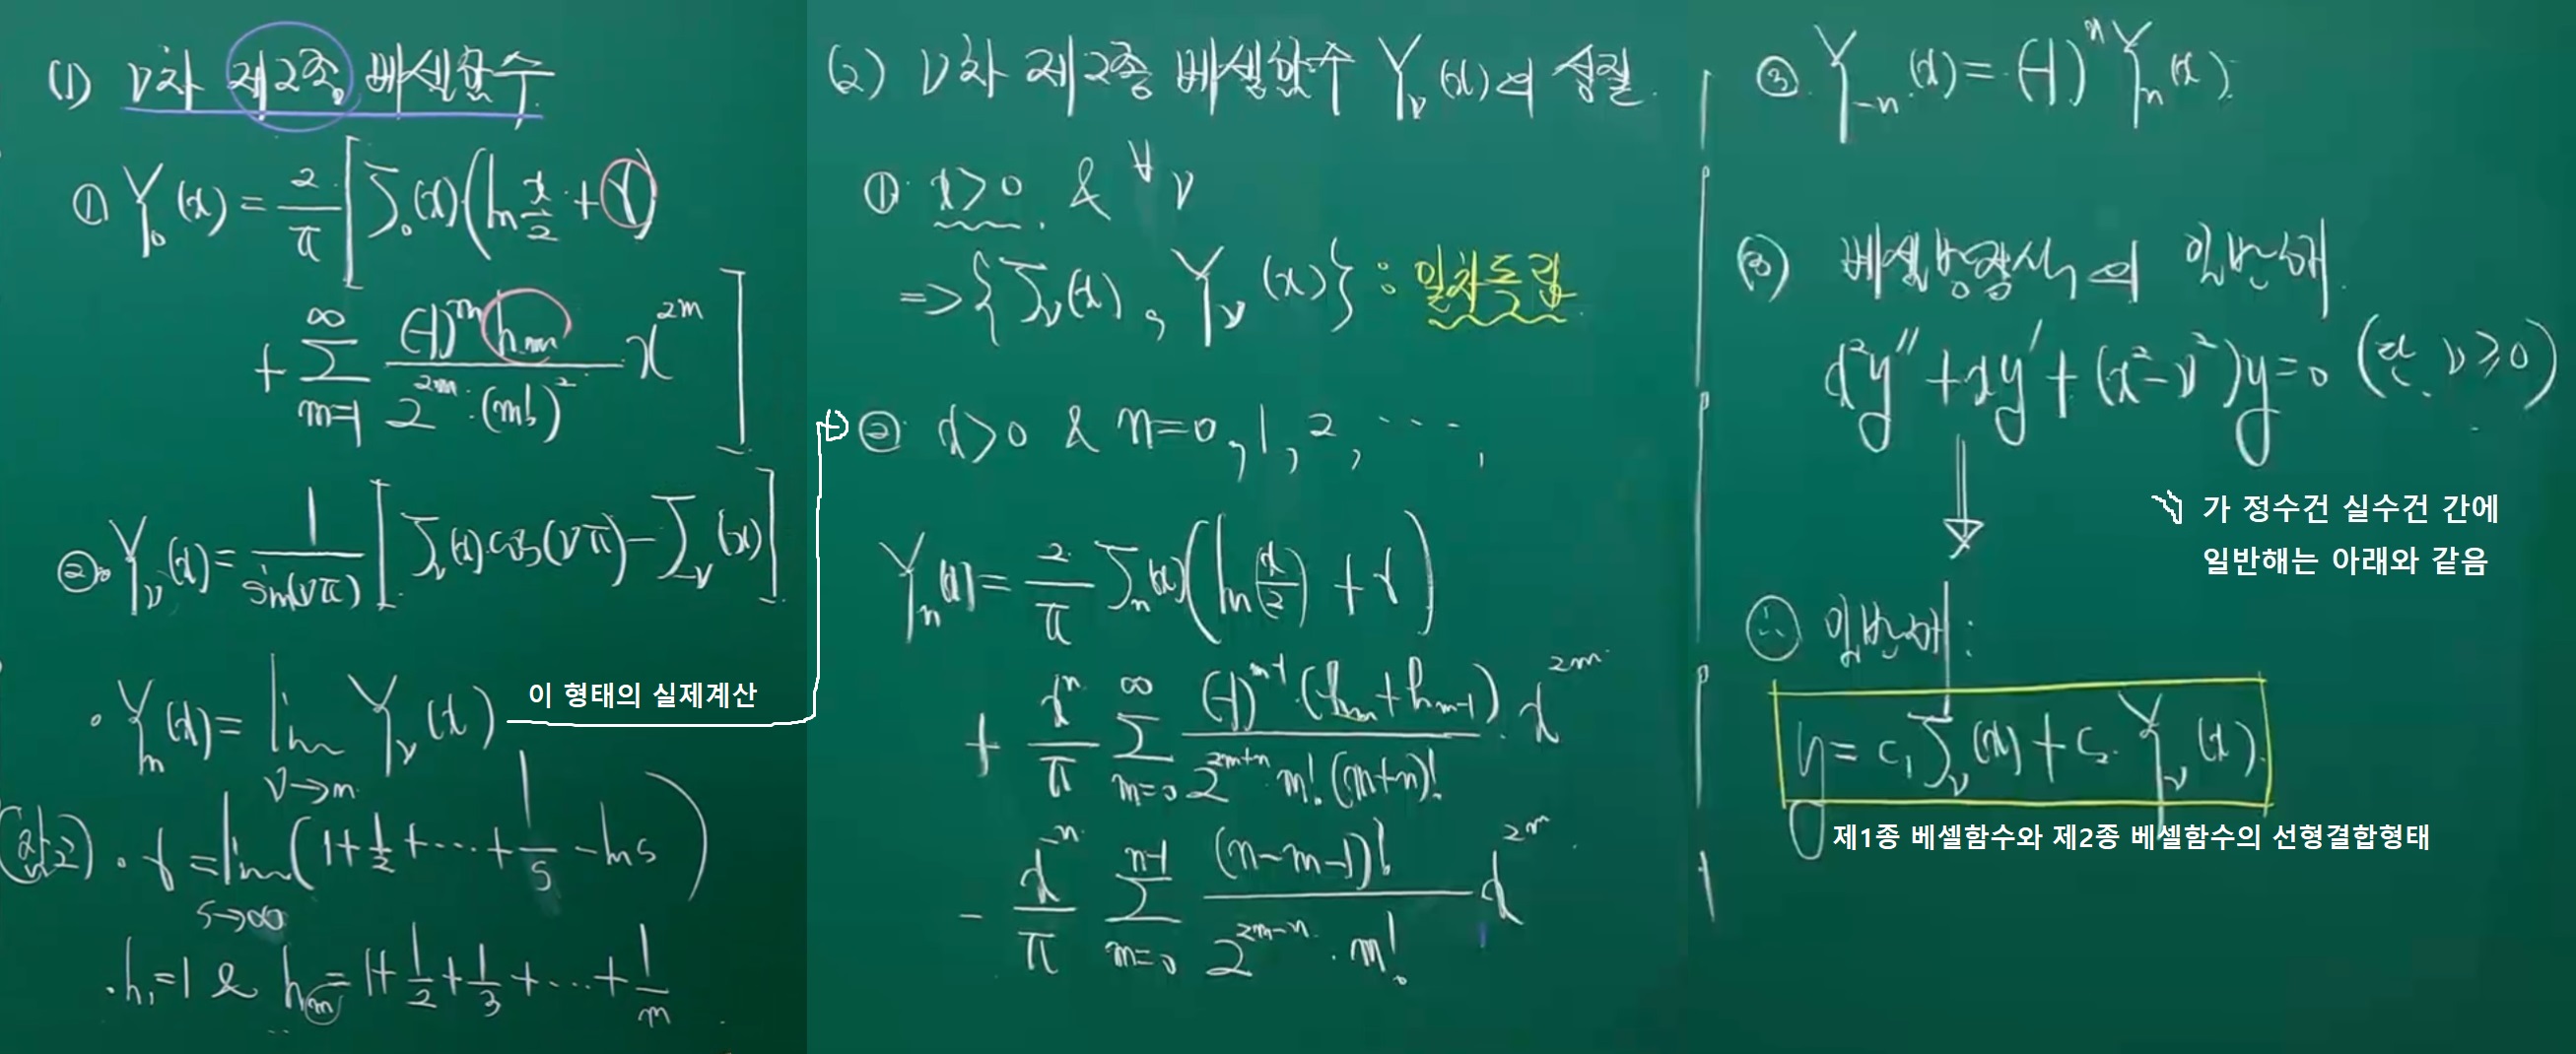 (1) ν차 제2종 베셀함수
① Y₀(x) = 2/π [ J₀(x)( ln x/2 + γ )
+ ∑_{m=1}^{∞} (-1)^m h_m / 2^{2m}·(m!)² x^{2m} ]
②. Y_ν(x) = 1/sin(νπ) [ J_ν(x)·cos(νπ) - J_{-ν}(x) ]
• Y_n(x) = lim_{ν→n} Y_ν(x) 이 형태의 실제계산
(참고) • γ = lim_{s→∞} ( 1 + 1/2 + ··· + 1/s - ln s )
• h₁ = 1 & h_m = 1 + 1/2 + 1/3 + ··· + 1/m
(2) ν차 제2종 베셀함수 Y_ν(x)의 성질.
①. x>0. & ∀ν
=> {J_ν(x), Y_ν(x)} : 일차독립
②. x>0 & n=0, 1, 2, ···,
Y_n(x) = 2/π J_n(x)( ln(x/2) + γ )
+ x^n/π ∑_{m=0}^{∞} (-1)^{m-1}·(h_m + h_{m-1}) / 2^{2m+n} m! (m+n)! · x^{2m}
- x^{-n}/π ∑_{m=0}^{n-1} (n-m-1)! / 2^{2m-n}·m! x^{2m}
③. Y_{-n}(x) = (-1)^n Y_n(x).
(3) 베셀방정식의 일반해.
x²y″ + xy′ + (x² - ν²)y = 0 (단, ν ≥ 0)
ν 가 정수건 실수건 간에
일반해는 아래와 같음
∴ 일반해 :
y = c₁J_ν(x) + c₂·Y_ν(x).
제1종 베셀함수와 제2종 베셀함수의 선형결합형태